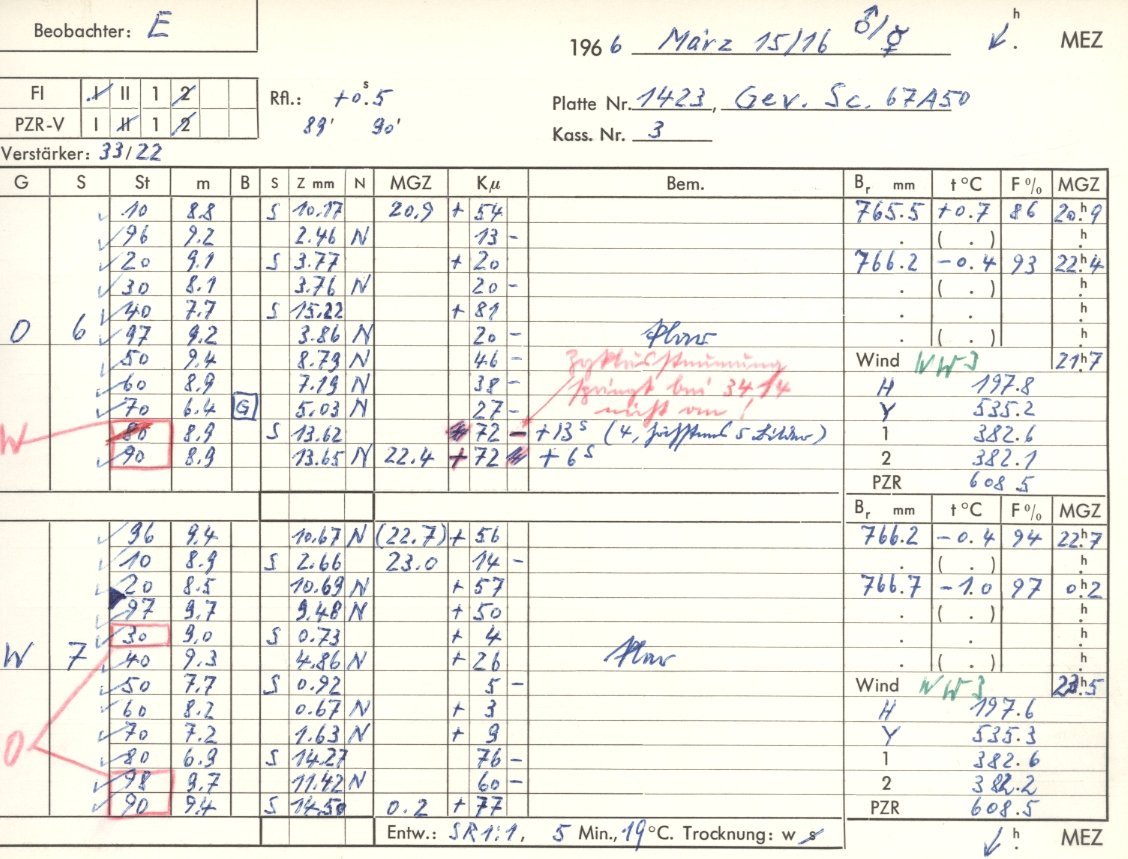 Beobachter: E
1966 März 15/16 ♂/☿ h . MEZ
FI I II 1 2
PZR-V I II 1 2
Rfl.: +0.s5
89' 90'
Platte Nr. 1423, Gev. Sc. 67A50
Kass. Nr. 3
Verstärker: 33/22
G S St m B S Z mm N MGZ Kμ Bem. Br mm t °C F % MGZ
10 8.8 S 10.17 20.9 + 54 765.5 +0.7 86 20h9
96 9.2 2.46 N 13 - . ( . ) h.
20 9.1 S 3.77 + 20 766.2 -0.4 93 22h4
30 8.1 3.76 N 20 - . ( . ) h.
40 7.7 S 15.22 + 81 . . h.
O 6 97 9.2 3.86 N 20 - klar . ( . ) h.
50 9.4 8.79 N 46 - Wind WW3 21h7
60 8.9 7.19 N 38 - springt bei 34,14 H 197.8
70 6.4 G 5.03 N 27 - nicht an! Y 535.2
W 80 8.9 S 13.62 72 - +13s (4, höchstens 5 Bilder) 1 382.6
90 8.9 13.65 N 22.4 + 72 + 6s 2 382.1
PZR 608 5
Br mm t °C F % MGZ
96 9.4 10.67 N (22.7) + 56 766.2 -0.4 94 22h7
10 8.9 S 2.66 23.0 14 - . ( . ) h.
20 8.5 10.69 N + 57 766.7 -1.0 97 0h2
97 9.7 9.48 N + 50 . ( . ) h.
30 9.0 S 0.73 + 4 . . h.
W 7 40 9.3 4.86 N + 26 klar . ( . ) h.
50 7.7 S 0.92 5 - Wind WW3 23h5
60 8.2 0.67 N + 3 H 197.6
70 7.2 1.63 N + 9 Y 535.3
O 80 6.9 S 14.27 76 - 1 382.6
98 9.7 11.42 N 60 - 2 382.2
90 9.4 S 14.50 0.2 + 77 PZR 608.5
Entw.: SR1:1, 5 Min., 19 °C. Trocknung: w s h . MEZ